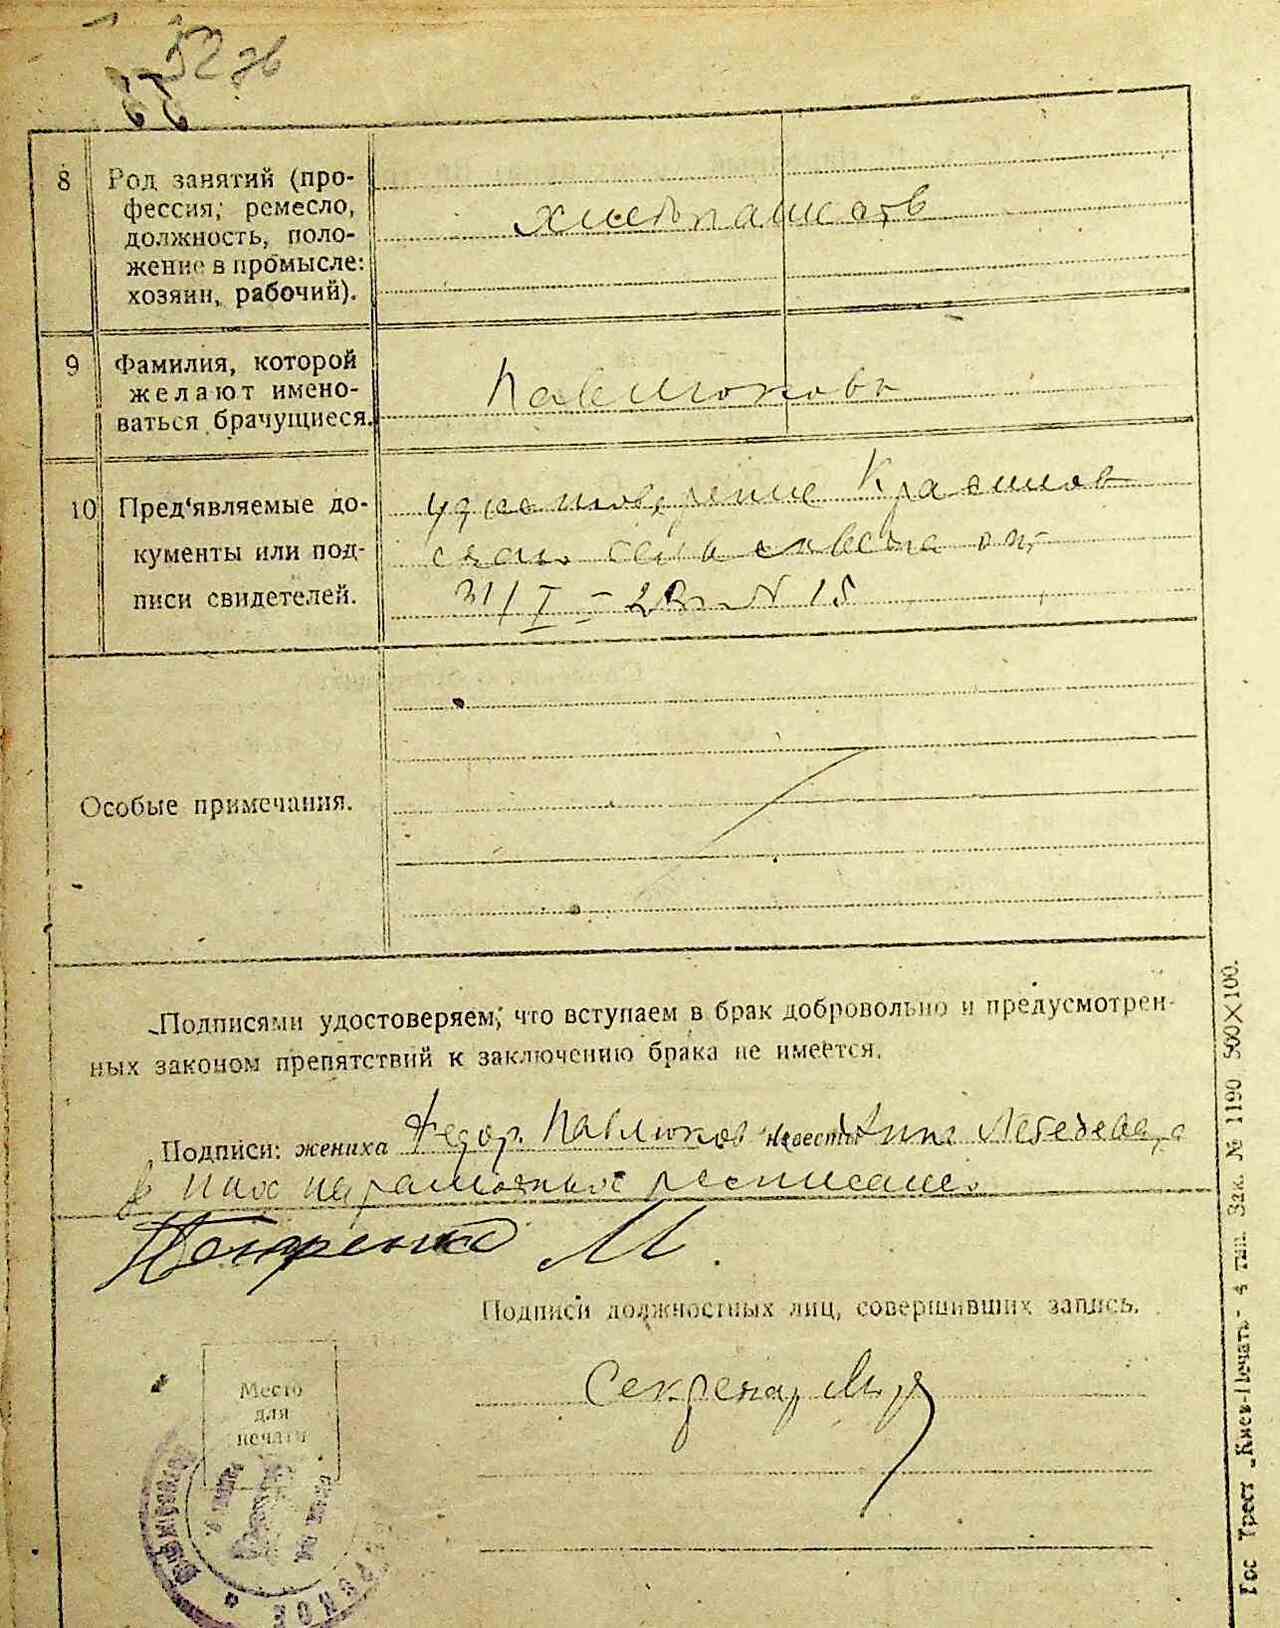 52 зв
8
Род занятий (про-
фессия; ремесло,
должность, поло-
жение в промысле:
хозяин, рабочий).
хлебпашеств
9
Фамилия, которой
желают имено-
ваться брачущиеся.
Павлюкова
10
Пред'являемые до-
кументы или под-
писи свидетелей.
удостоверение Красилов
от
31/I - 23 г N 15
Особые примечания.
Подписями удостоверяем, что вступаем в брак добровольно и предусмотрен-
ных законом препятствий к заключению брака не имеется.
Подписи: жениха Федор Павлюков невесты Анна Лебедева, а
расписался
М.
Подписи должностных лиц, совершивших запись.
Секретар
Место
для
печати
Гос Трест „Киев-Печать" - 4 тип. Зак. № 1190 500×100.